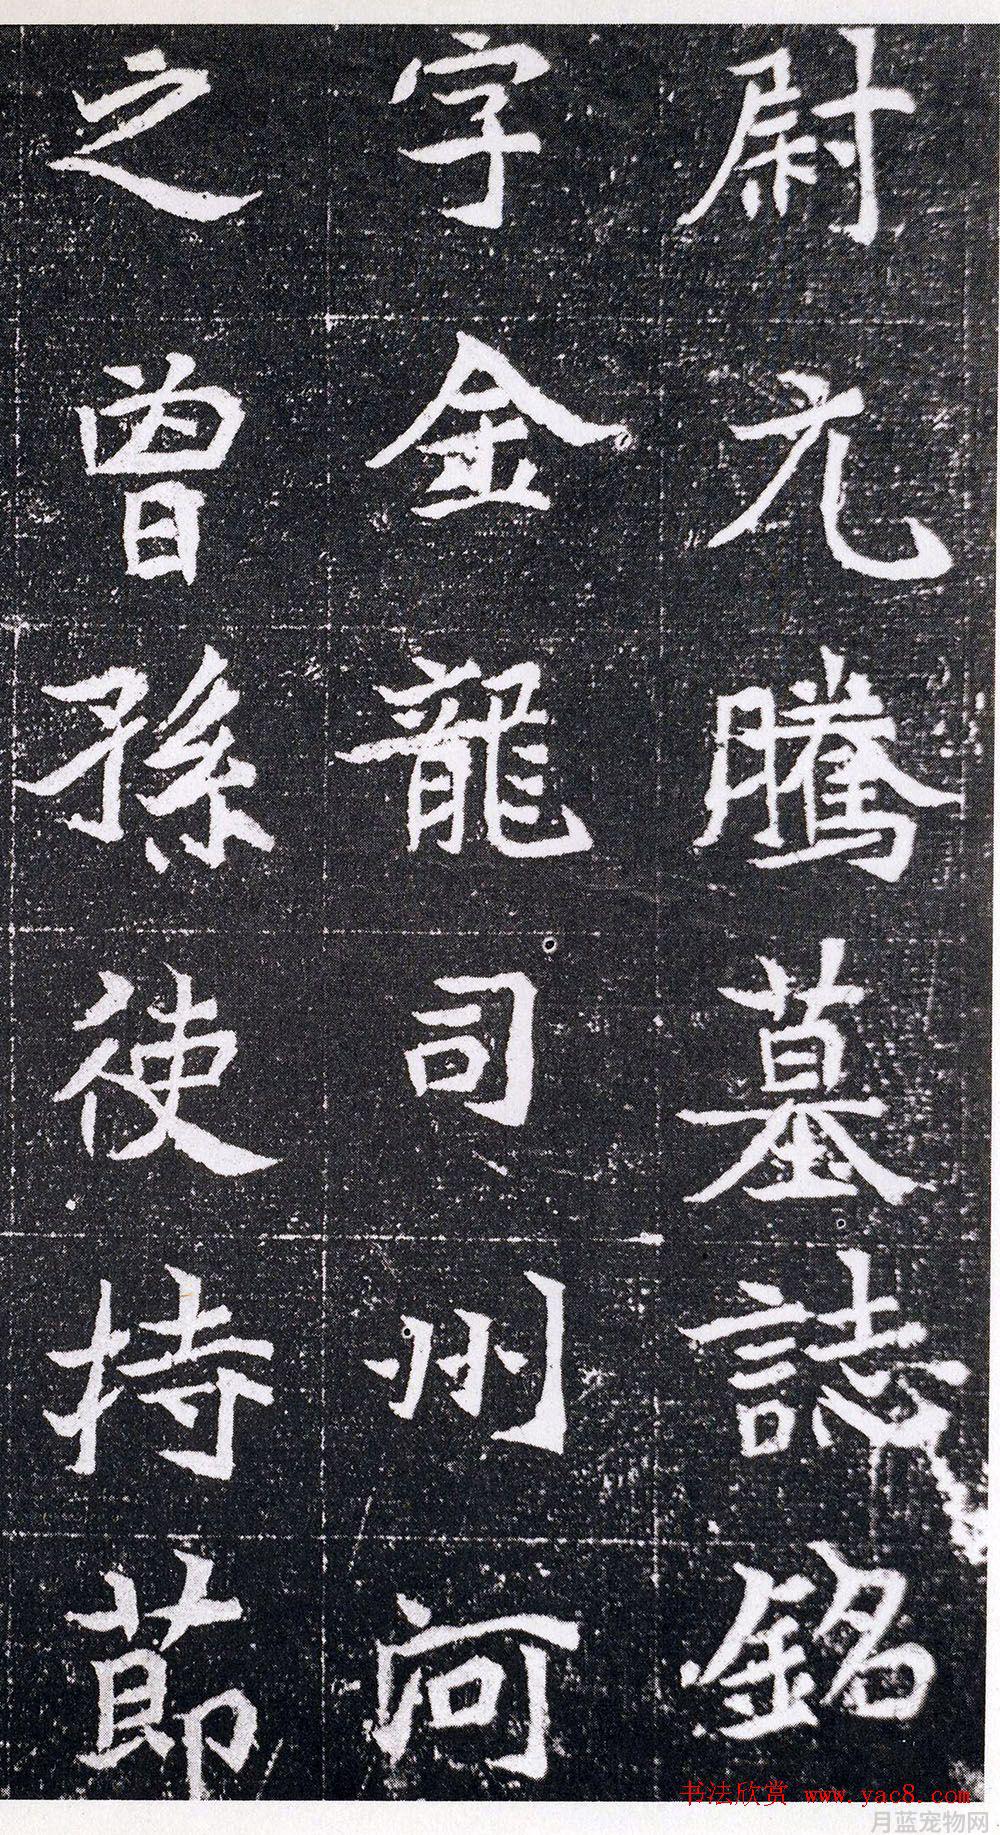 尉元騰墓誌銘
字金龍司州河
之曾孫使持節
书法欣赏 www.yac8.com
月蓝宠物网